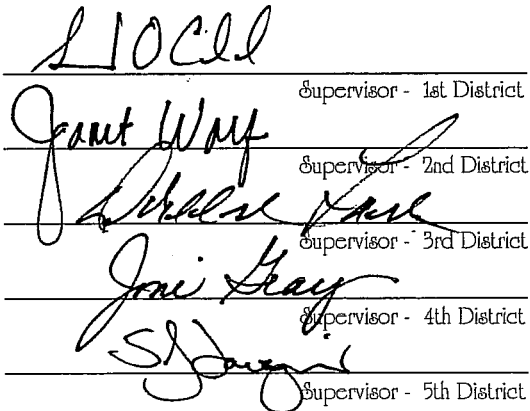 Supervisor - 1st District
Janet Wolf
Supervisor - 2nd District
Supervisor - 3rd District
Joni Gray
Supervisor - 4th District
Supervisor - 5th District